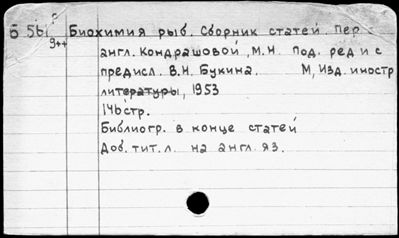 Б 561 Биохимия рыб. Сборник статей. Пер с
9++ англ. Кондрашовой, М.Н. Под. ред и с
предисл. В.Н. Букина. М, Изд. иностр
литературы, 1953
146 стр.
Библиогр. в конце статей
Доб. тит. л. на англ. яз.